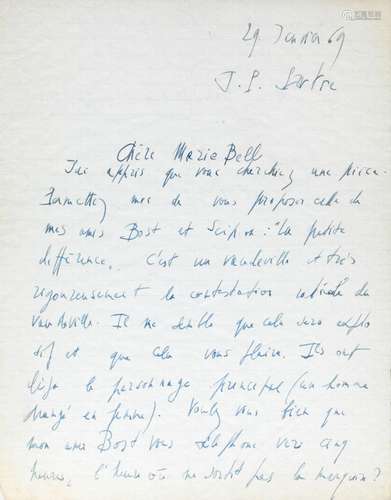 29 Janvier 69
J. P. Sartre
Chère Marie Bell
J'ai appris que vous cherchiez une pièce.
Permettez moi de vous proposer celle de
mes amis Bost et Scipion : "La petite
différence". C'est un vaudeville et très
rigoureusement la contestation radicale du
Vaudeville. Il me semble que cela sera explo
sif et que cela vous plaira. Ils ont
le personnage principal (un homme
changé en femme). Voulez vous bien que
mon ami Bost vous téléphone vers cinq
heures, l'heure où ne sortit pas la marquise ?